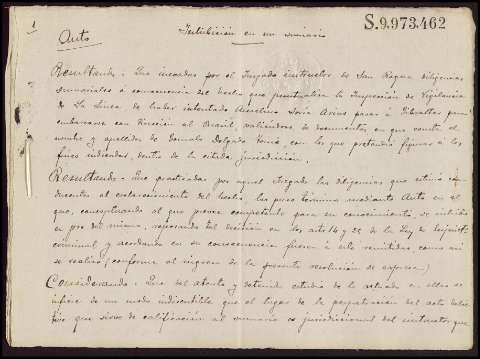 1
S.9.973.462
Auto
Inhibición en un sumario
Resultando = Que incoadas por el Juzgado instructor de San Roque diligencias
sumariales á consecuencia del hecho que puntualiza la Inspección de Vigilancia
de La Línea de haber intentado Soria Arias pasar á Gibraltar para
embarcarse con dirección al Brasil, valiéndose de documentos en que consta el
nombre y apellidos de Delgado Soria, con los que pretendía figurar á los
fines indicados, dentro de la citada jurisdicción.
Resultando = Que practicadas por aquel Juzgado las diligencias que estimó con-
ducentes al esclarecimiento del hecho, las puso término mediante Auto en el
que, conceptuando al que provee competente para su conocimiento, se inhibió
en pro del mismo, razonando tal decisión en los artos 14 y 25 de la Ley de
criminal y acordando en su consecuencia fueran á éste remitidas, como así
se realizó (conforme al ingreso de la presente resolución se expresa.)
Considerando = Que del atento y detenido estudio de lo actuado en ellas se
infiere de un modo indiscutible que el lugar de la perpetración del acto delic-
tivo que sirve de calificación al sumario es jurisdiccional del instructor que